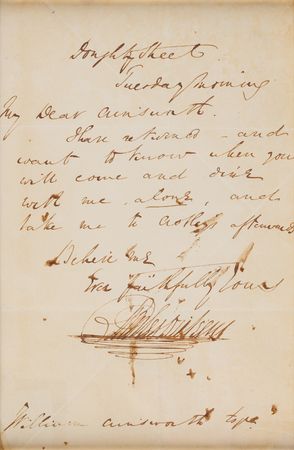 Doughty Street
Tuesday Morning
My Dear Ainsworth.
I have returned – and
want to know when you
will come and dine
with me, alone, and
take me to afterwards
Believe me
Ever Faithfully Yours
Charles Dickens
William Ainsworth Esqre